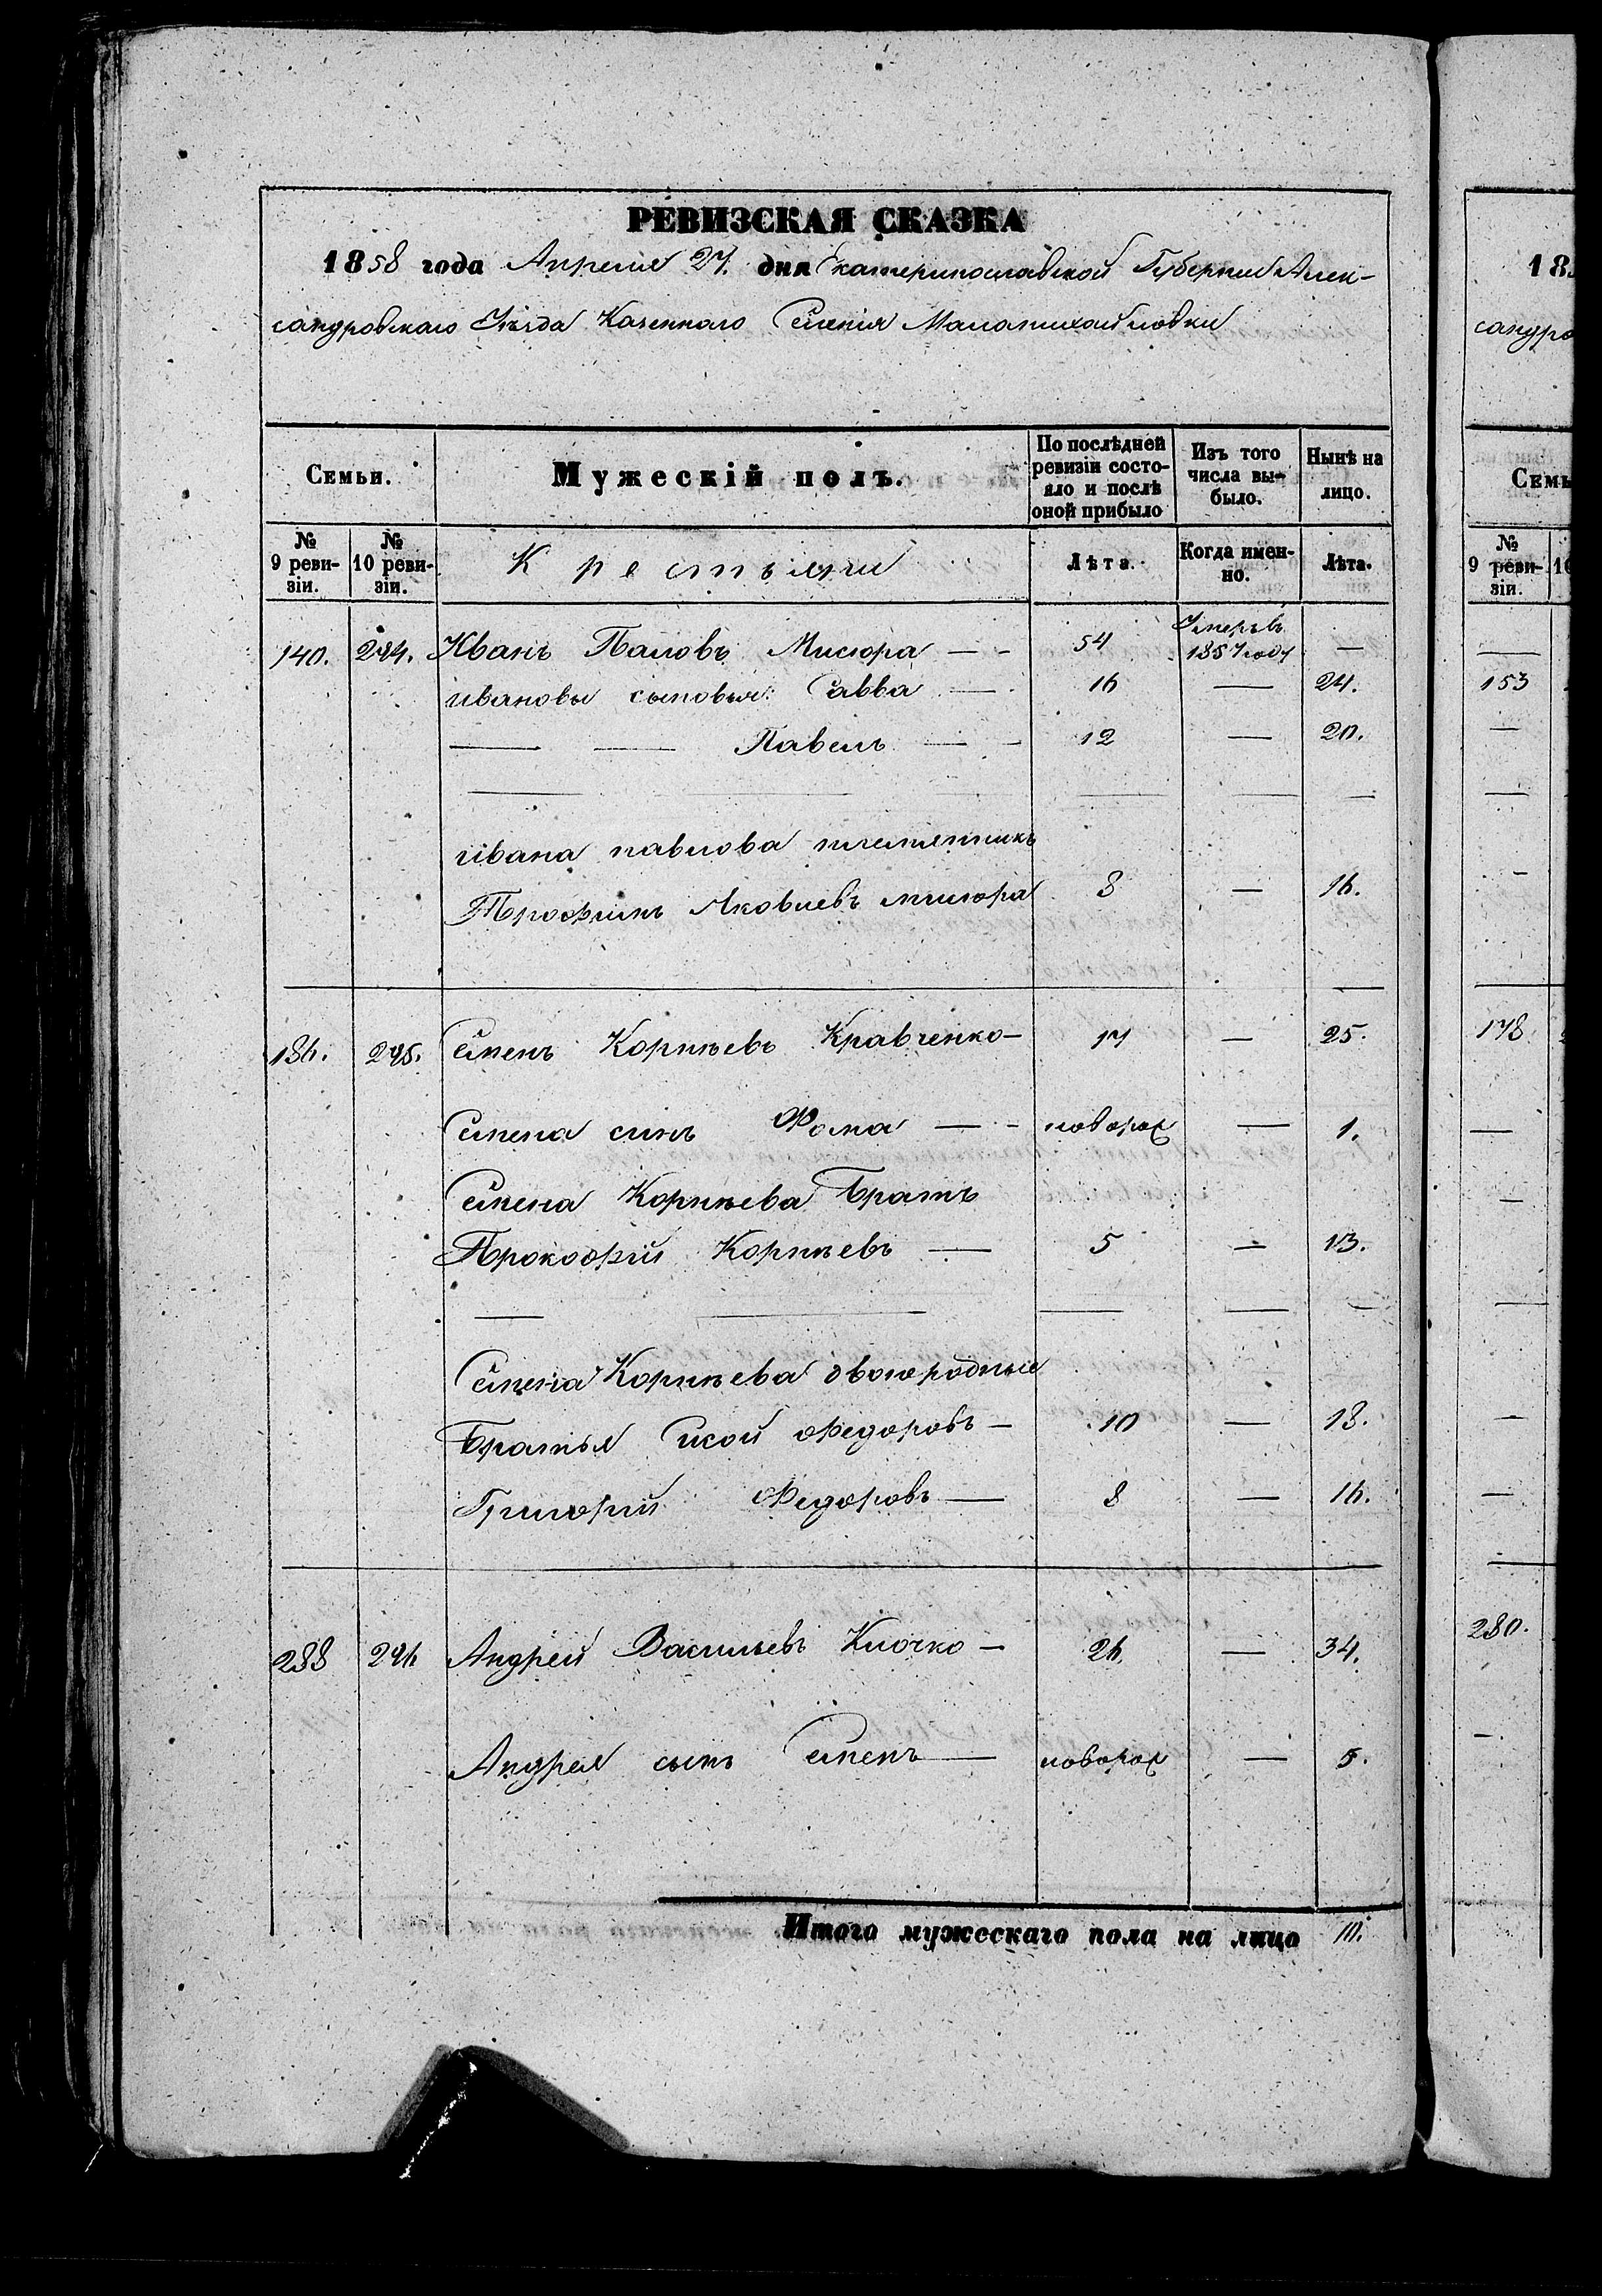 РЕВИЗСКАЯ СКАЗКА
1858 года Апреля 27. дня Екатеринославской Губернии Алек-
сандровскаго Уезда Казеннаго Селенія Маломихайловки
Семьи.
Мужескій полъ.
По послѣдней
ревизіи состо-
яло и послѣ
оной прибыло
Изъ того
числа вы-
было.
Нынѣ на
лицо.
№
9 реви-
зіи.
№
10 реви-
зіи.
Крестьяни
Лѣта.
Когда имен-
но.
Лѣта.
140. 294. Иванъ Павловъ Мисюра — - 54 Умеръ въ 1857 году —
ивановы сыновья: Савва — 16 — 24.
— — Павелъ — - 12 — 20.
ивана павлова племянникъ
Трофимъ Яковлевъ мисюра 8 — 16.
186. 295. Семенъ Корнѣевъ Кравченко — 17 — 25.
Семена синъ Фома — - новорож — 1.
Семена Корнѣева Братъ
Прокофій Корнѣевъ — 5 — 13.
Семена Корнѣева двоюродные
Братья Сисой Федоровъ — 10 — 18.
Григорій Федоровъ — 8 — 16.
288 296 Андрей Васильевъ Клочко — 26 — 34.
Андрея сынъ Семенъ — новорож — 5.
Итого мужескаго пола на лицо 10.
18
сандро
Семь
№
9 реви-
зіи.
153
178
280.